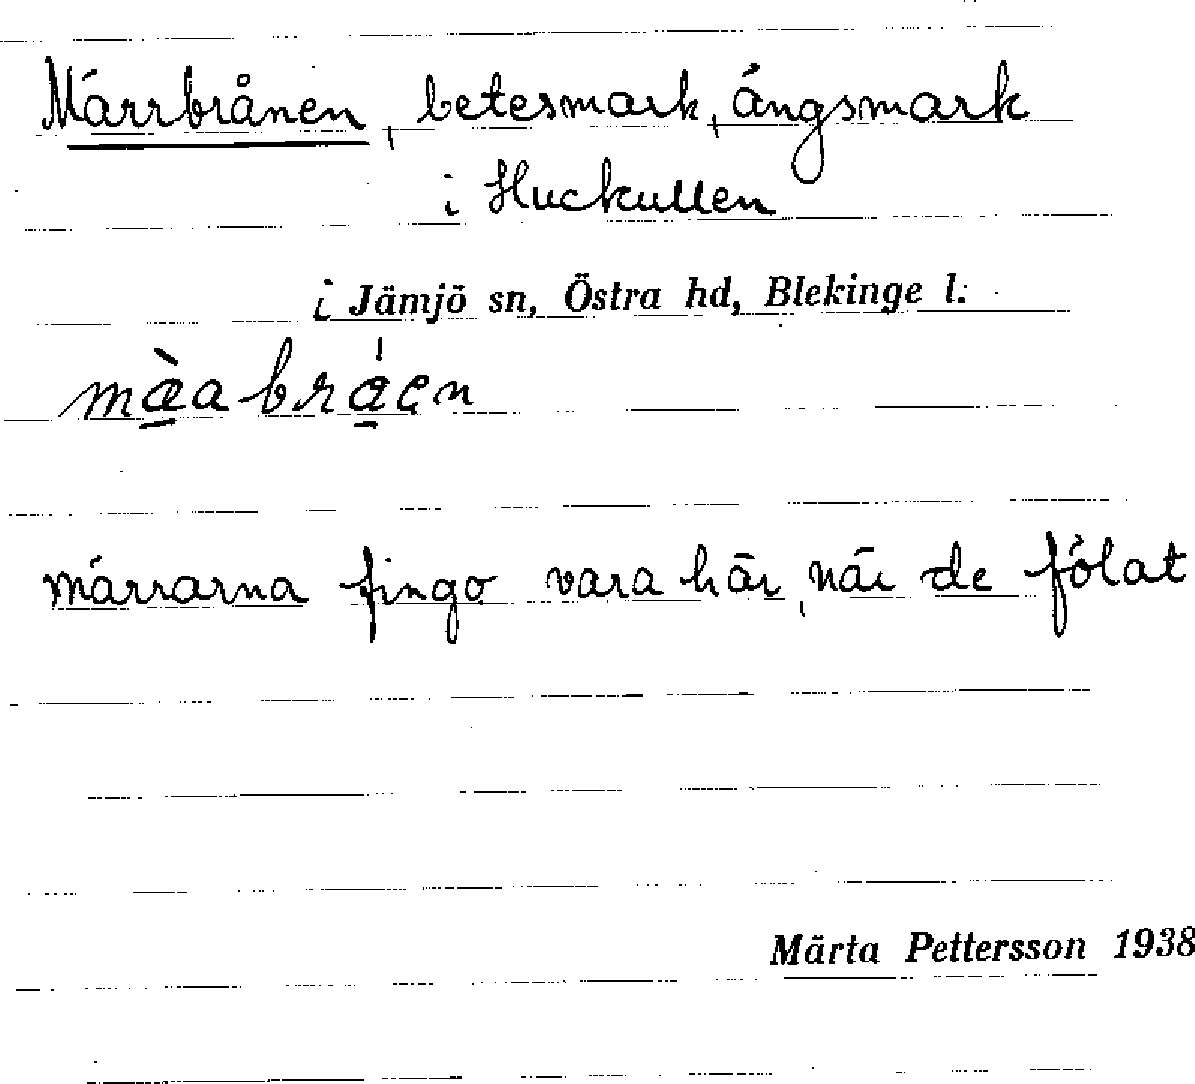 Märrbrånen, betesmark, ängsmark
i Huckullen
i Jämjö sn, Östra hd, Blekinge l.
märrarna fingo vara här, när de fölat
Märta Pettersson 1938